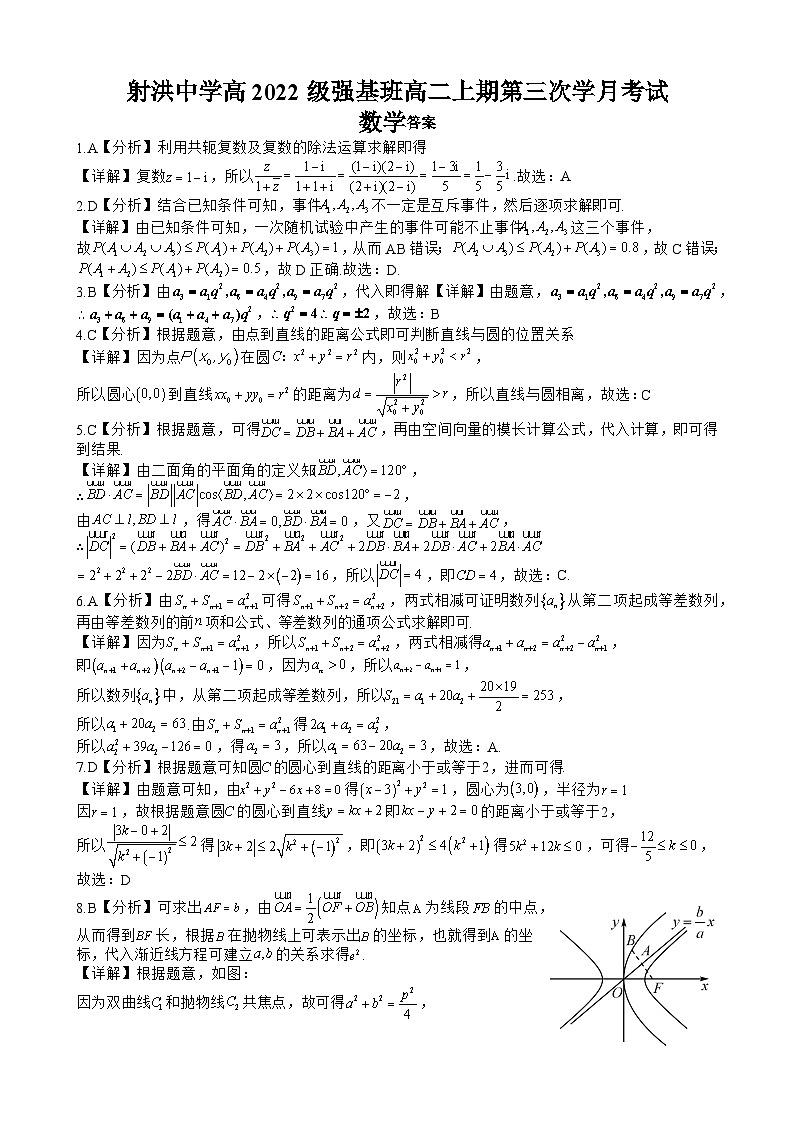 射洪中学高 2022 级强基班高二上期第三次学月考试
数学答案
1.A【分析】利用共轭复数及复数的除法运算求解即得
【详解】复数z = 1 − i，所以 z/(1+z̄) = (1−i)/(1+1+i) = (1−i)(2−i)/((2+i)(2−i)) = (1−3i)/5 = 1/5 − 3/5 i .故选：A
2.D【分析】结合已知条件可知，事件A₁, A₂, A₃不一定是互斥事件，然后逐项求解即可.
【详解】由已知条件可知，一次随机试验中产生的事件可能不止事件A₁, A₂, A₃这三个事件，
故P(A₁∪A₂∪A₃) ≤ P(A₁)+P(A₂)+P(A₃) = 1，从而 AB 错误；P(A₂∪A₃) ≤ P(A₂)+P(A₃) = 0.8，故 C 错误；
P(A₁+A₂) ≤ P(A₁)+P(A₂) = 0.5，故 D 正确.故选：D.
3.B【分析】由a₃ = a₁q², a₆ = a₄q², a₉ = a₇q²，代入即得解【详解】由题意，a₃ = a₁q², a₆ = a₄q², a₉ = a₇q²，
∴ a₃ + a₆ + a₉ = (a₁ + a₄ + a₇)q²，∴ q² = 4 ∴ q = ±2，故选：B
4.C【分析】根据题意，由点到直线的距离公式即可判断直线与圆的位置关系
【详解】因为点P(x₀, y₀)在圆C: x² + y² = r²内，则x₀² + y₀² < r²，
所以圆心(0,0)到直线xx₀ + yy₀ = r²的距离为d = |r²|/√(x₀² + y₀²) > r，所以直线与圆相离，故选：C
5.C【分析】根据题意，可得DC = DB + BA + AC，再由空间向量的模长计算公式，代入计算，即可得
到结果.
【详解】由二面角的平面角的定义知⟨BD, AC⟩ = 120°，
∴ BD · AC = |BD||AC|cos⟨BD, AC⟩ = 2×2×cos120° = −2，
由AC ⊥ l, BD ⊥ l，得AC · BA = 0, BD · BA = 0，又DC = DB + BA + AC，
∴ |DC|² = (DB + BA + AC)² = DB² + BA² + AC² + 2DB · BA + 2DB · AC + 2BA · AC
= 2² + 2² + 2² − 2BD · AC = 12 − 2×(−2) = 16，所以|DC| = 4，即CD = 4，故选：C.
6.A【分析】由Sₙ + Sₙ₊₁ = aₙ₊₁²可得Sₙ₊₁ + Sₙ₊₂ = aₙ₊₂²，两式相减可证明数列{aₙ}从第二项起成等差数列，
再由等差数列的前n项和公式、等差数列的通项公式求解即可.
【详解】因为Sₙ + Sₙ₊₁ = aₙ₊₁²，所以Sₙ₊₁ + Sₙ₊₂ = aₙ₊₂²，两式相减得aₙ₊₁ + aₙ₊₂ = aₙ₊₂² − aₙ₊₁²，
即(aₙ₊₁ + aₙ₊₂)(aₙ₊₂ − aₙ₊₁ − 1) = 0，因为aₙ > 0，所以aₙ₊₂ − aₙ₊₁ = 1，
所以数列{aₙ}中，从第二项起成等差数列，所以S₂₁ = a₁ + 20a₂ + (20×19)/2 = 253，
所以a₁ + 20a₂ = 63.由Sₙ + Sₙ₊₁ = aₙ₊₁²得2a₁ + a₂ = a₂²，
所以a₂² + 39a₂ − 126 = 0，得a₂ = 3，所以a₁ = 63 − 20a₂ = 3，故选：A.
7.D【分析】根据题意可知圆C的圆心到直线的距离小于或等于2，进而可得.
【详解】由题意可知，由x² + y² − 6x + 8 = 0得(x − 3)² + y² = 1，圆心为(3,0)，半径为r = 1
因r = 1，故根据题意圆C的圆心到直线y = kx + 2即kx − y + 2 = 0的距离小于或等于2，
所以|3k − 0 + 2|/√(k² + (−1)²) ≤ 2得|3k + 2| ≤ 2√(k² + (−1)²)，即(3k + 2)² ≤ 4(k² + 1)得5k² + 12k ≤ 0，可得−12/5 ≤ k ≤ 0，
故选：D
8.B【分析】可求出AF = b，由OA = 1/2(OF + OB)知点A为线段FB的中点，
从而得到BF长，根据B在抛物线上可表示出B的坐标，也就得到A的坐
标，代入渐近线方程可建立a,b的关系求得e².
【详解】根据题意，如图：
因为双曲线C₁和抛物线C₂共焦点，故可得a² + b² = p²/4，
y
y = b/a x
B
A
O
F
x